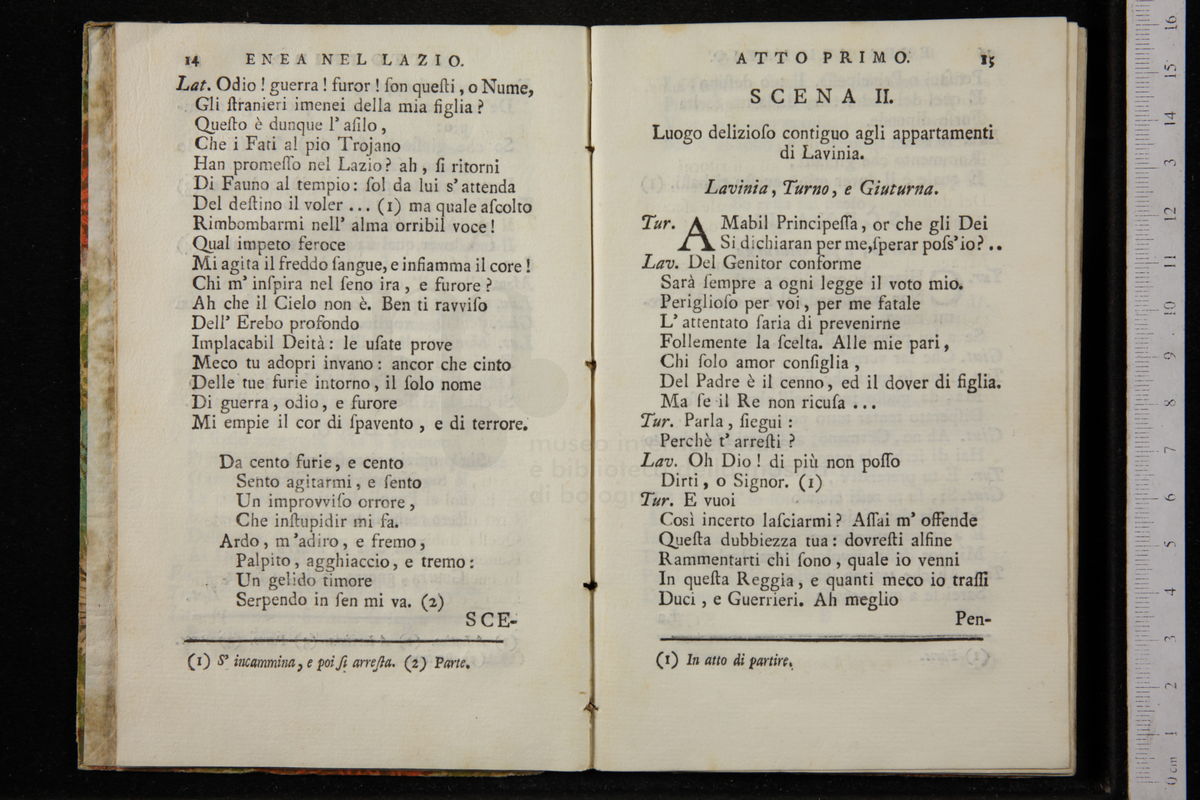 14 ENEA NEL LAZIO.
Lat. Odio ! guerra ! furor ! ſon queſti , o Nume,
Gli ſtranieri imenei della mia figlia ?
Queſto è dunque l' aſilo ,
Che i Fati al pio Trojano
Han promeſſo nel Lazio ? ah , ſi ritorni
Di Fauno al tempio : ſol da lui s' attenda
Del deſtino il voler ... (1) ma quale aſcolto
Rimbombarmi nell' alma orribil voce !
Qual impeto feroce
Mi agita il freddo ſangue, e infiamma il core !
Chi m' inſpira nel ſeno ira , e furore ?
Ah che il Cielo non è. Ben ti ravviſo
Dell' Erebo profondo
Implacabil Deità : le uſate prove
Meco tu adopri invano : ancor che cinto
Delle tue furie intorno , il ſolo nome
Di guerra , odio , e furore
Mi empie il cor di ſpavento , e di terrore.
Da cento furie, e cento
Sento agitarmi, e ſento
Un improvviſo orrore ,
Che inſtupidir mi fa.
Ardo , m 'adiro , e fremo ,
Palpito , agghiaccio , e tremo :
Un gelido timore
Serpendo in ſen mi va. (2)
SCE-
(1) S' incammina , e poi ſi arreſta. (2) Parte.
ATTO PRIMO. 15
SCENA II.
Luogo delizioſo contiguo agli appartamenti
di Lavinia.
Lavinia , Turno , e Giuturna.
Tur. AMabil Principeſſa , or che gli Dei
Si dichiaran per me,ſperar poſs'io? ..
Lav. Del Genitor conforme
Sarà ſempre a ogni legge il voto mio.
Periglioſo per voi , per me fatale
L' attentato ſaria di prevenirne
Follemente la ſcelta. Alle mie pari ,
Chi ſolo amor configlia ,
Del Padre è il cenno , ed il dover di figlia.
Ma ſe il Re non ricuſa ...
Tur. Parla , ſiegui :
Perchè t' arreſti ?
Lav. Oh Dio ! di più non poſſo
Dirti , o Signor. (1)
Tur. E vuoi
Così incerto laſciarmi ? Aſſai m' offende
Queſta dubbiezza tua : dovreſti alfine
Rammentarti chi ſono , quale io venni
In queſta Reggia , e quanti meco io traſſi
Duci , e Guerrieri. Ah meglio
Pen-
(1) In atto di partire.